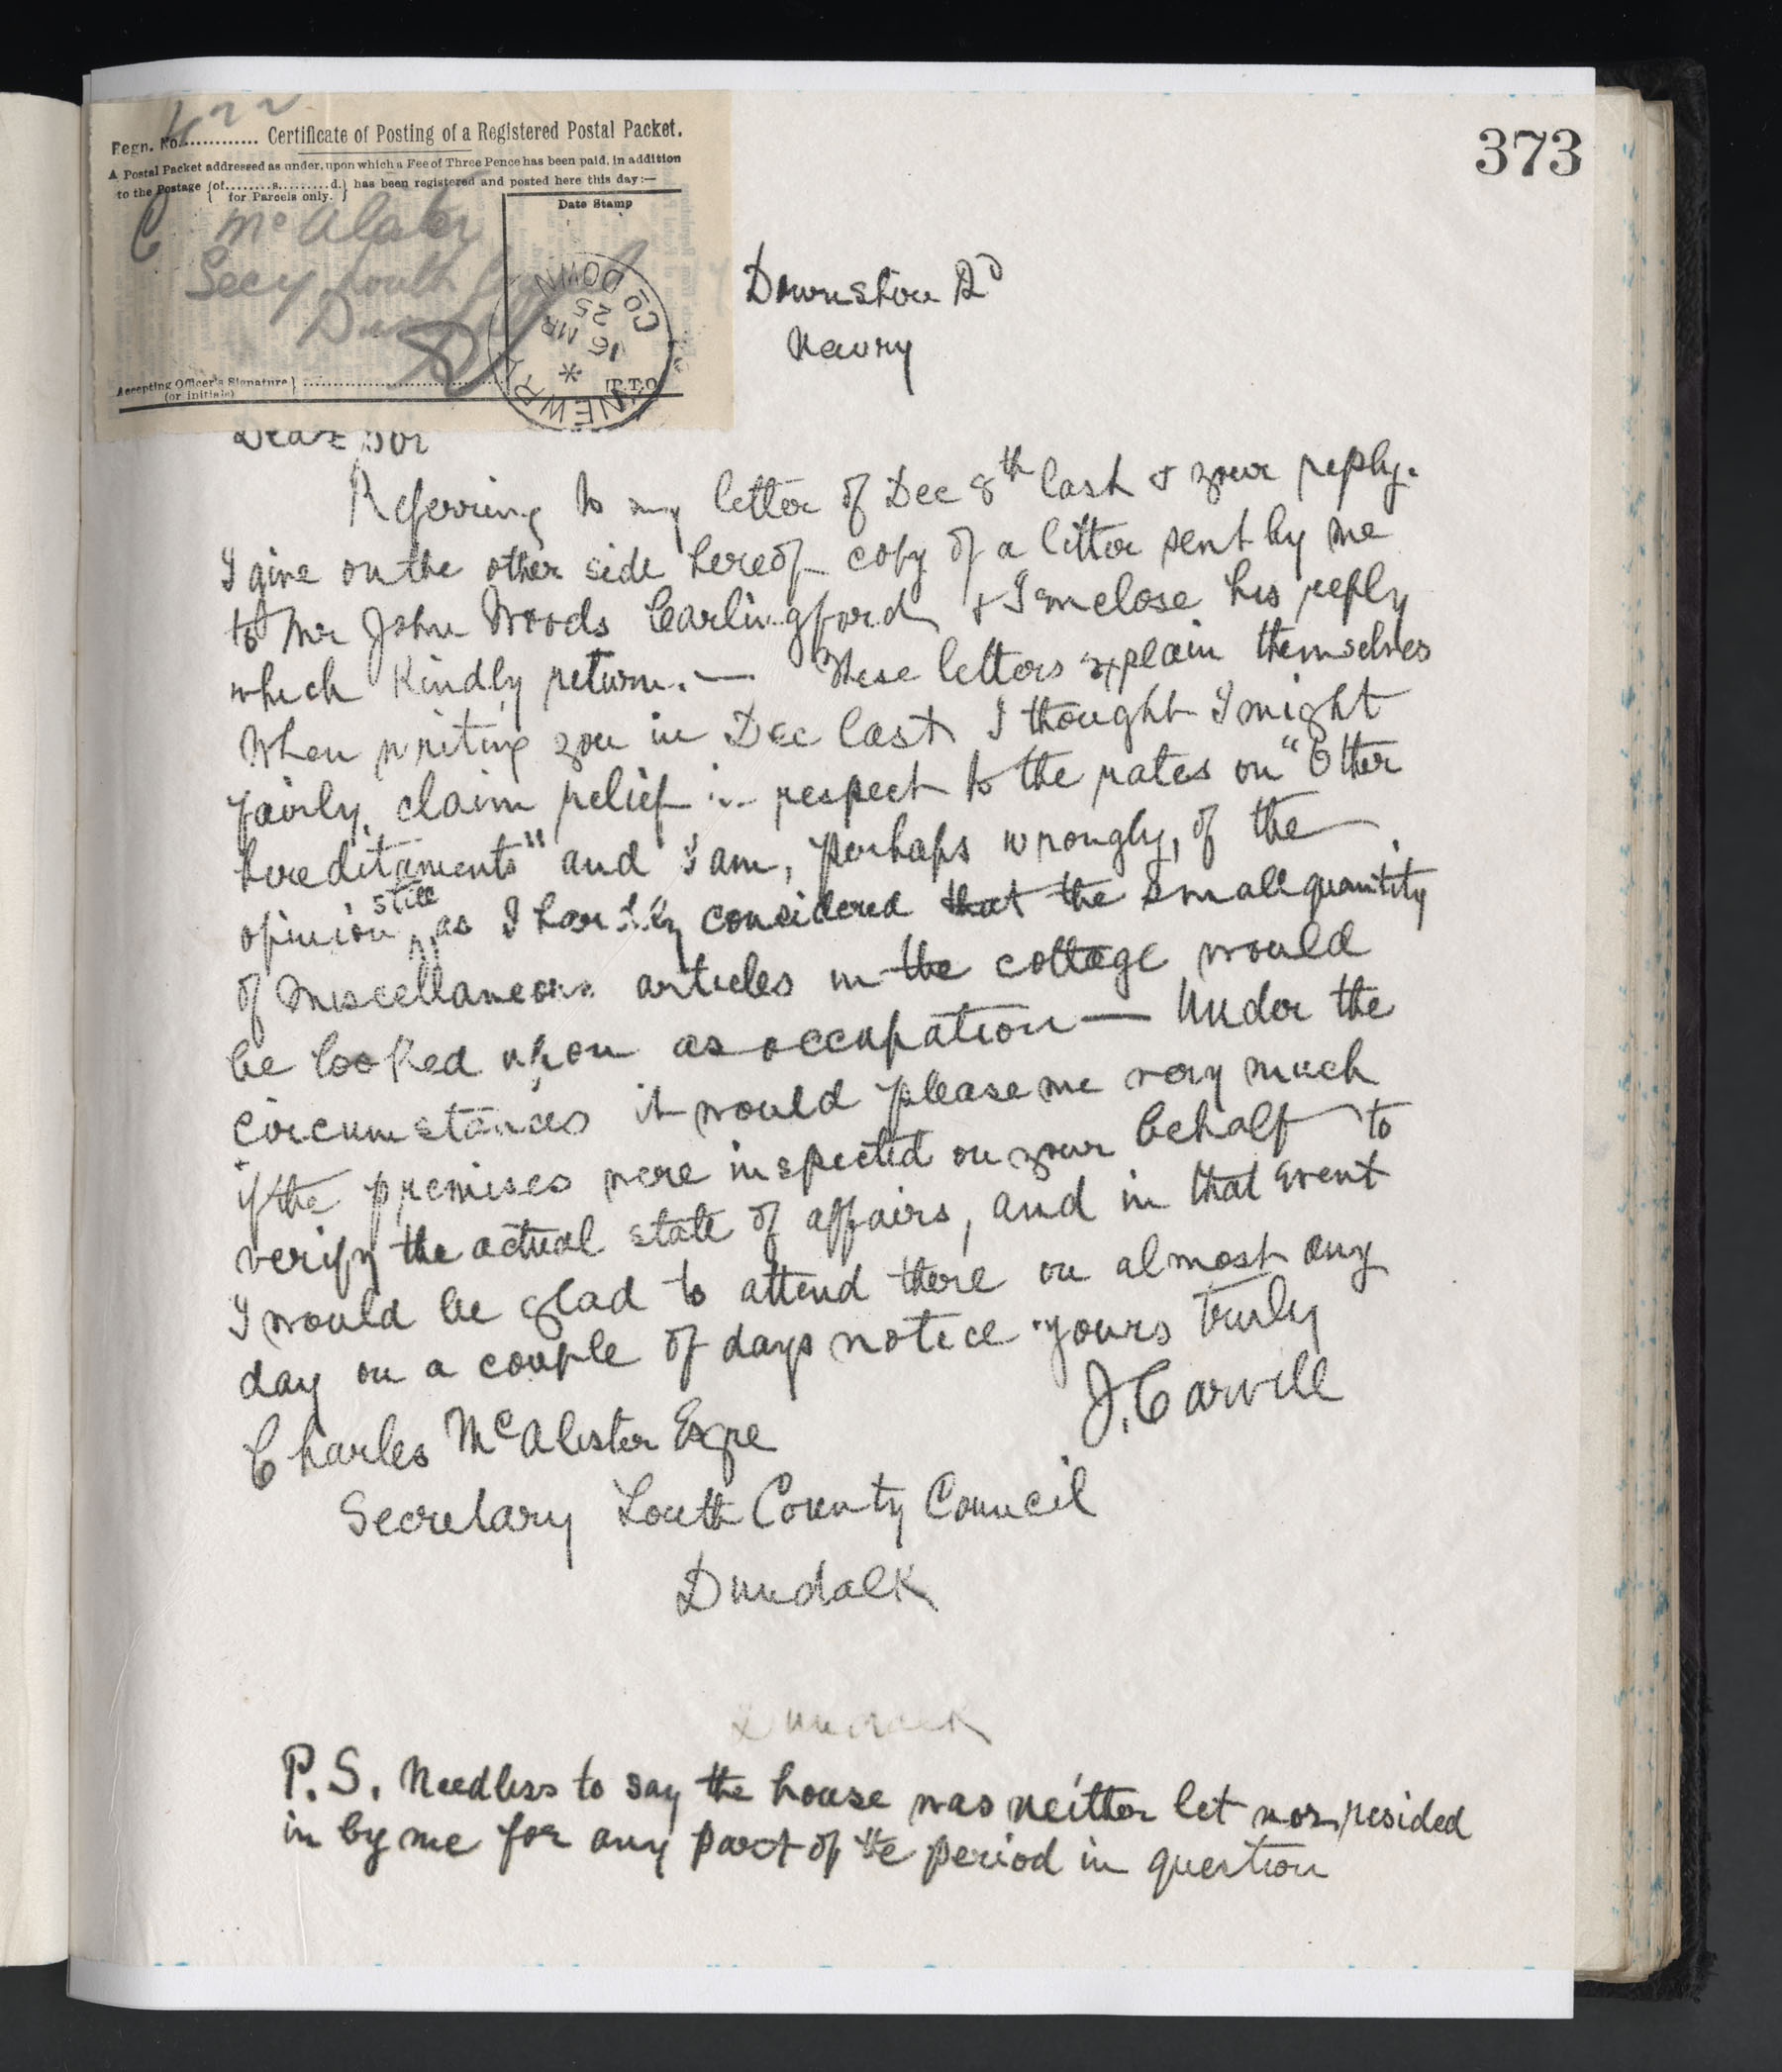 373
Regn. No. 422 Certificate of Posting of a Registered Postal Packet.
A Postal Packet addressed as under, upon which a Fee of Three Pence has been paid, in addition
to the Postage {of.........s.........d.} has been registered and posted here this day:—
for Parcels only.
Date Stamp
C McAlister
Secy Louth
NEWRY * CO DOWN
16 MR
25
Accepting Officer's Signature}
(or initials)
[P.T.O.
Downshire Rd
Newry
Dear Sir
Referring to my letter of Dec 8th last & your reply.
I give on the other side hereof copy of a letter sent by me
to Mr John Woods Carlingford & I enclose his reply
which Kindly return. — These letters explain themselves
When writing you in Dec last I thought I might
fairly claim relief in respect to the rates on "Other
hereditaments" and I am, perhaps wrongly, of the
opinion still, as I hardly considered that the small quantity
of Miscellaneous articles in the cottage would
be looked upon as occupation — Under the
circumstances it would please me very much
if the premises were inspected on your behalf to
verify the actual state of affairs, and in that event
I would be glad to attend there on almost any
day on a couple of days notice Yours truly
J. Carvill
Charles McAlister Esqre
Secretary Louth County Council
Dundalk
Dundalk
P.S. Needless to say the house was neither let nor resided
in by me for any part of the period in question